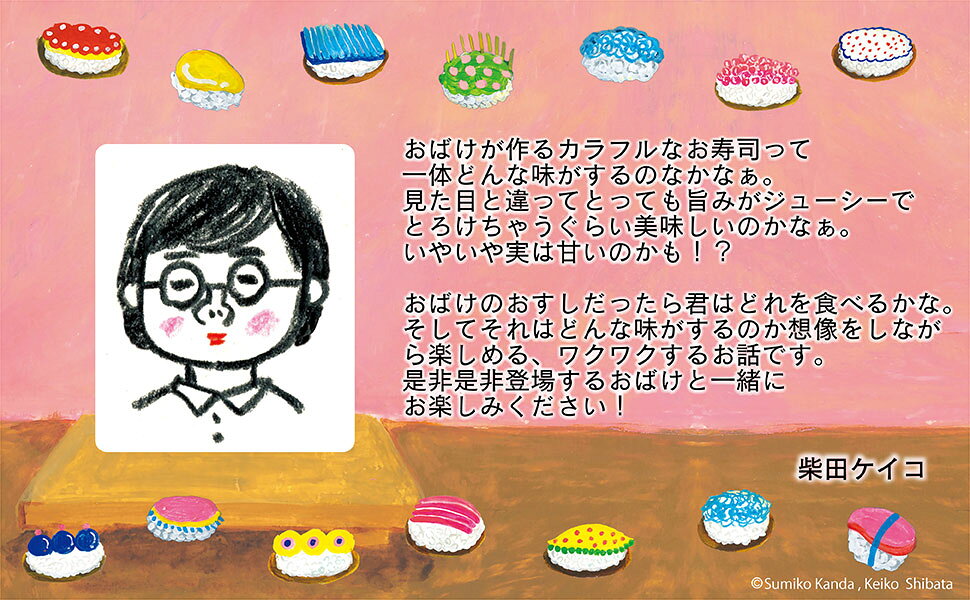 おばけが作るカラフルなお寿司って
一体どんな味がするのなかなぁ。
見た目と違ってとっても旨みがジューシーで
とろけちゃうぐらい美味しいのかなぁ。
いやいや実は甘いのかも！？
おばけのおすしだったら君はどれを食べるかな。
そしてそれはどんな味がするのか想像をしなが
ら楽しめる、ワクワクするお話です。
是非是非登場するおばけと一緒に
お楽しみください！
柴田ケイコ
©Sumiko Kanda , Keiko Shibata